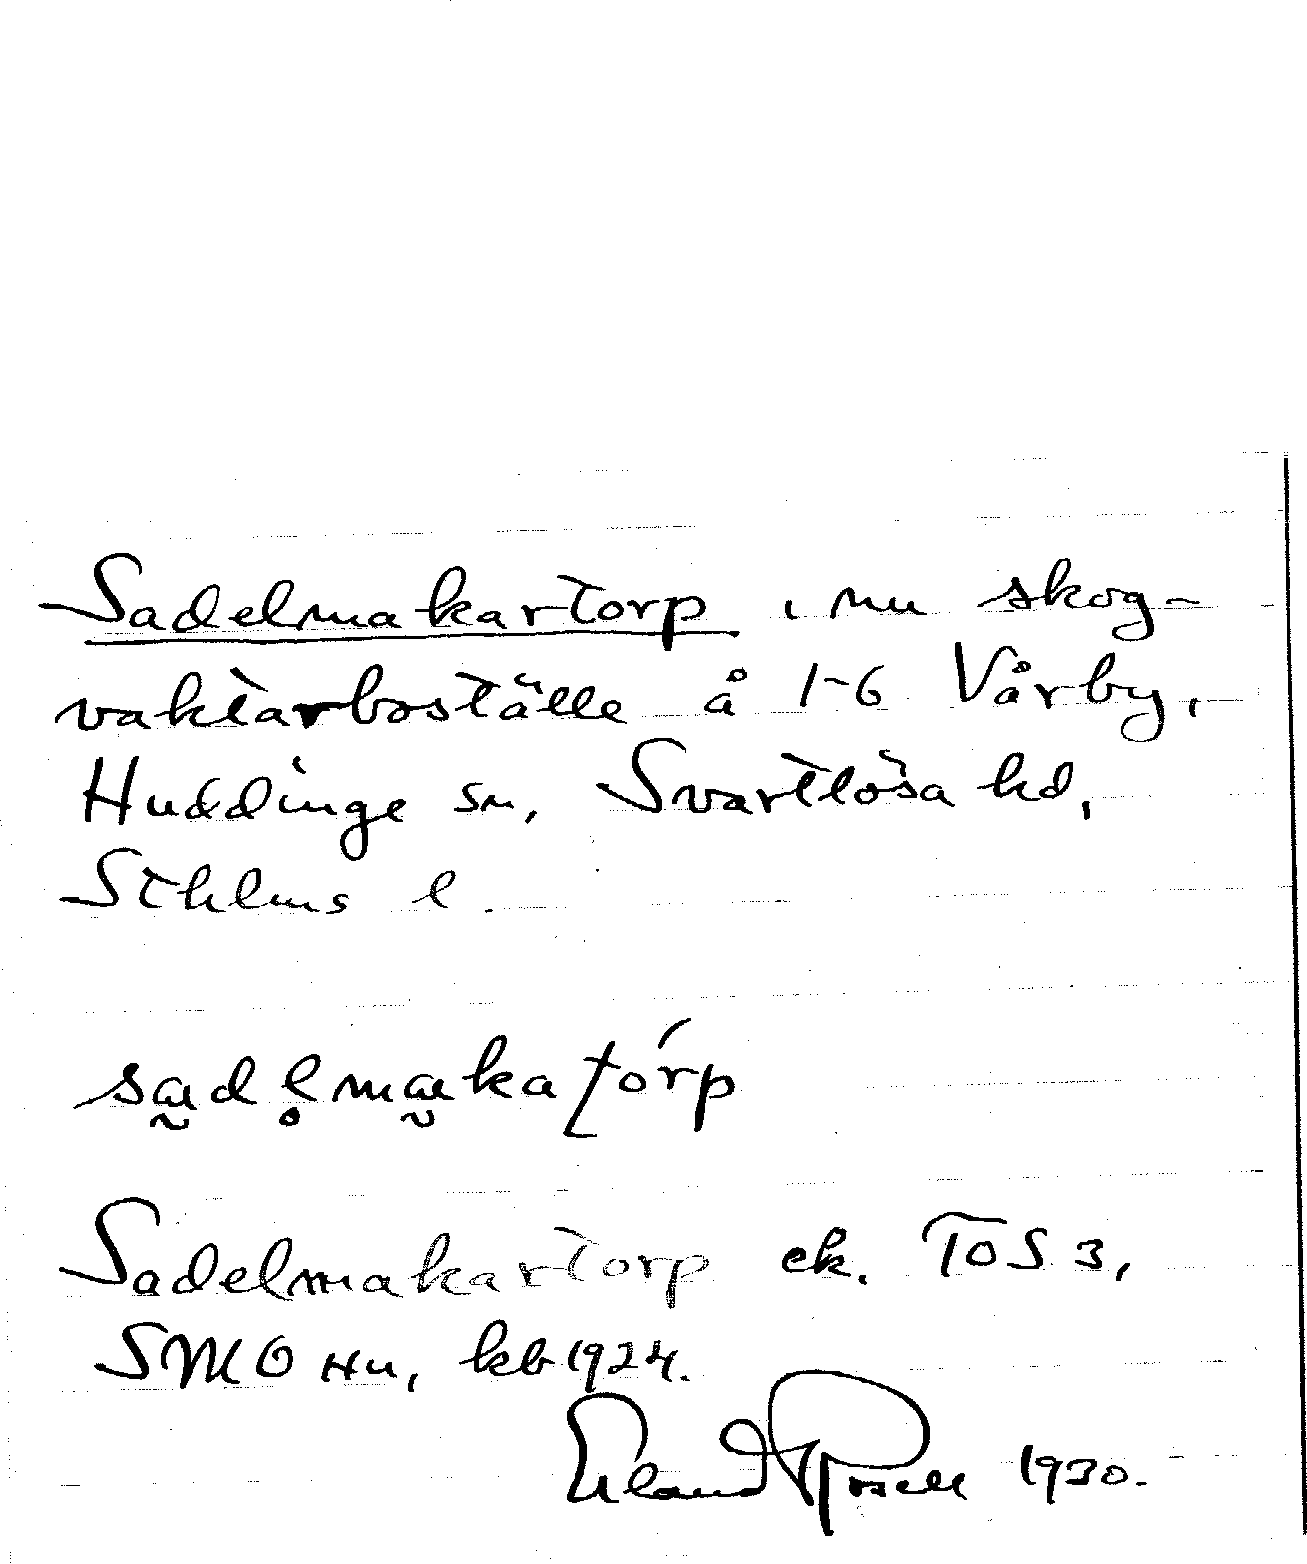 Sadelmakartorp, nu skog-
vaktarboställe å 1-6 Vårby,
Huddinge sn, Svartlösa hd,
Sthlms l.
sa̰del̥ma̰ka tórp
Sadelmakartorp ek. TOS 3,
SMO Hu, kb 1924.
Erland Rosell 1930.